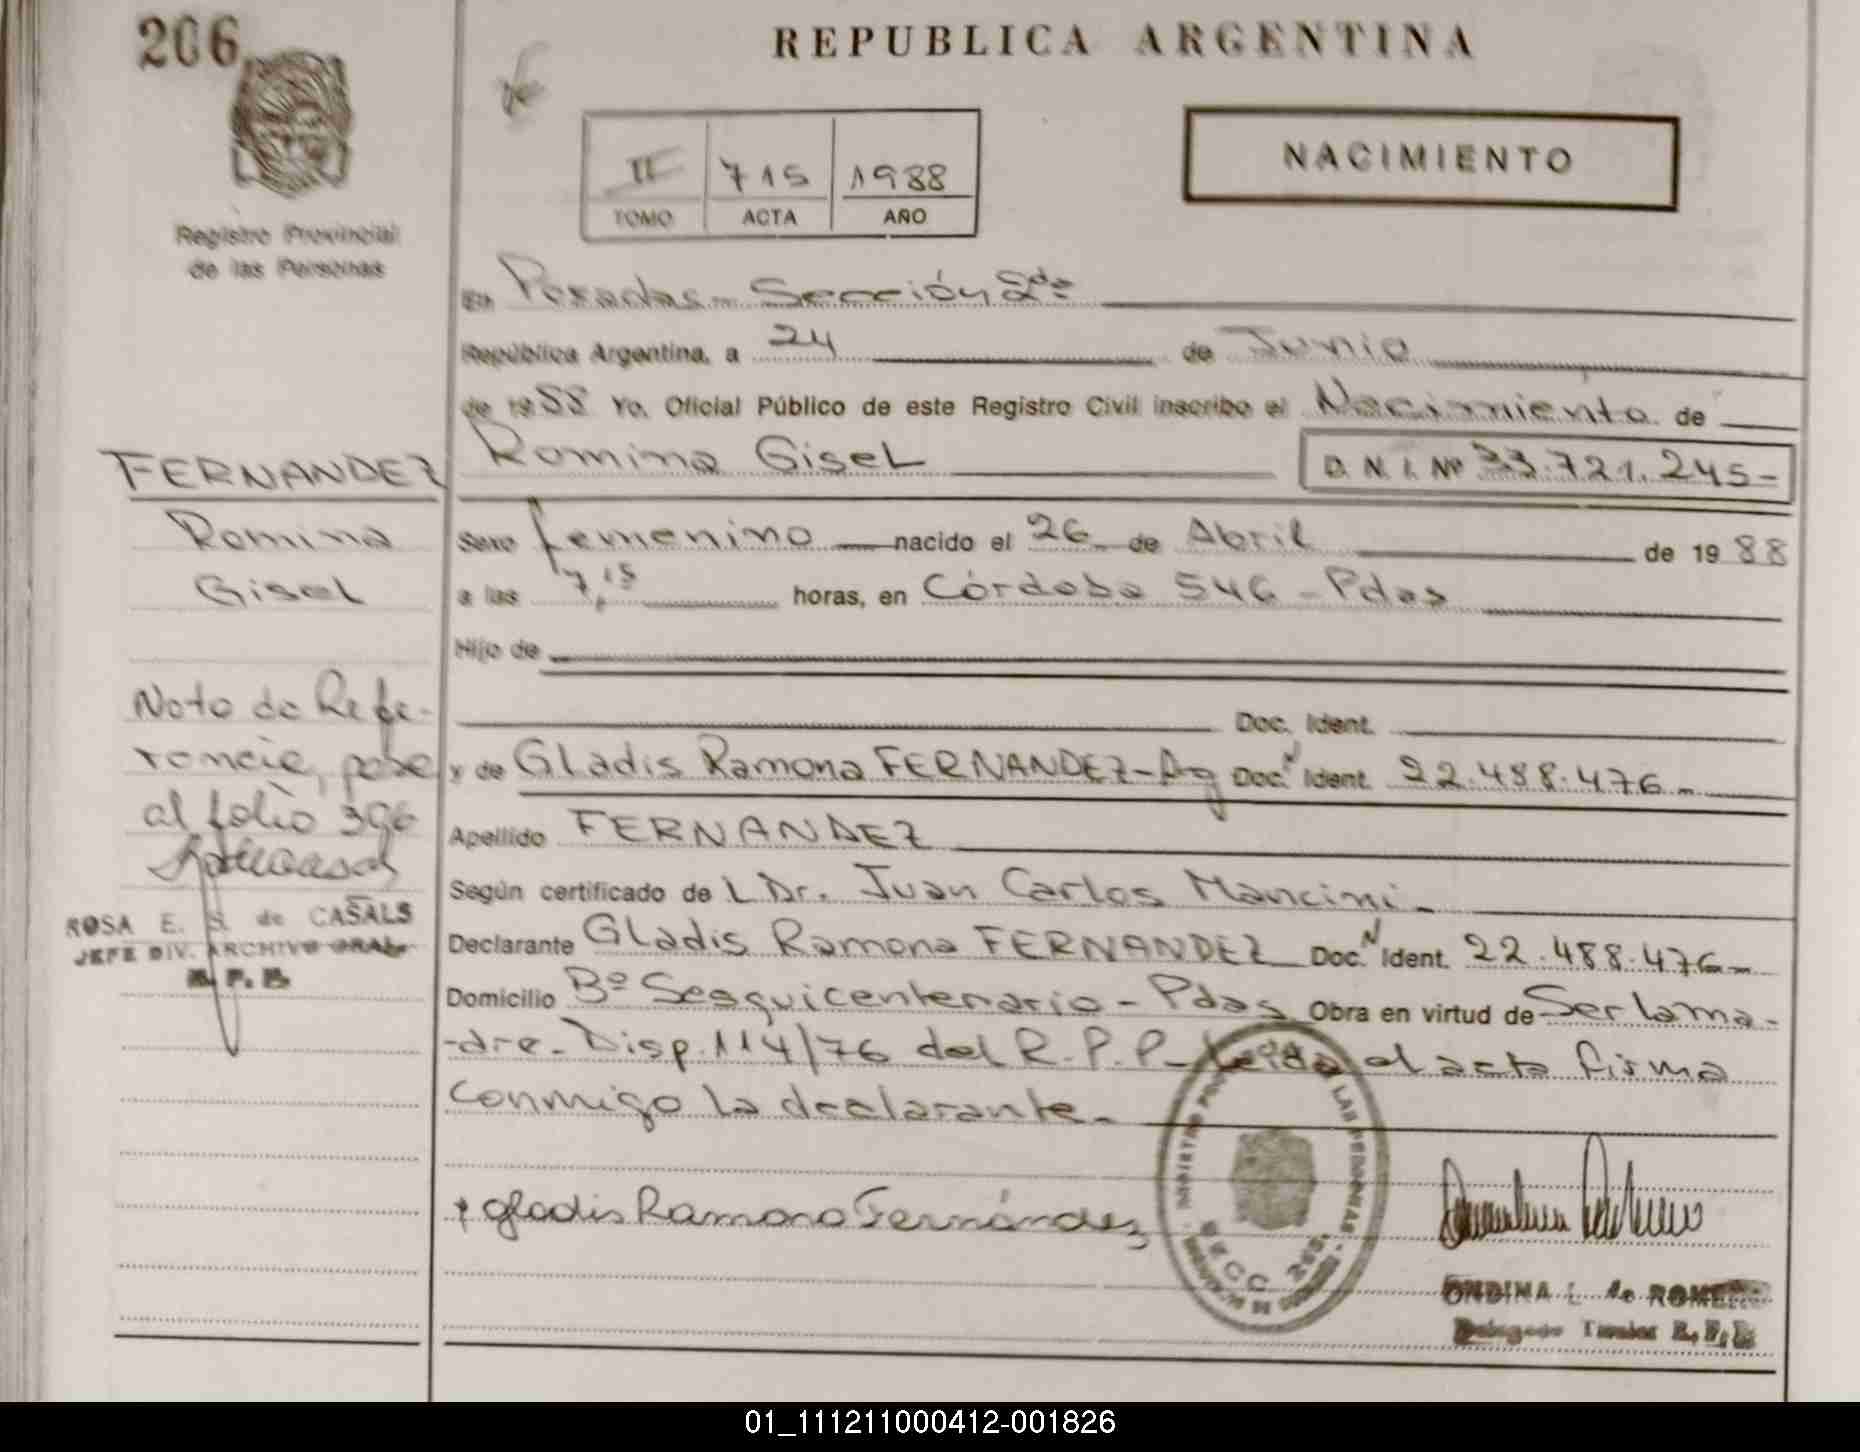 206
REPUBLICA ARGENTINA
II 715 1988
TOMO ACTA AÑO
NACIMIENTO
Registro Provincial
de las Personas
En Posadas - Sección 2da
República Argentina, a 24 de Junio
de 1988 Yo, Oficial Público de este Registro Civil inscribo el Nacimiento de
Romina Gisel D. N. I. Nº 33.721.245-
Sexo femenino nacido el 26 de Abril de 1988
a las 7,15 horas, en Córdoba 546 - Pdas
Hijo de
Doc. Ident.
y de Gladis Ramona FERNANDEZ - Arg Doc. N Ident. 22.488.476-
Apellido FERNANDEZ
Según certificado de L Dr. Juan Carlos Mancini -
Declarante Gladis Ramona FERNANDEZ Doc. N Ident. 22.488.476-
Domicilio Bº Sesquicentenario - Pdas Obra en virtud de Ser la ma-
-dre - Disp. 114/76 del R.P.P - Leída el acta firma
conmigo la declarante -
FERNANDEZ
Romina
Gisel
Nota de Refe-
rencia, pase
al folio 396
ROSA E. S. de CASALS
JEFE DIV. ARCHIVO GRAL.
R. P. P.
+ Gladis Ramona Fernández
LAS PERSONAS
SECC. 2da
ONDINA L. de ROMERO
R. P. P.
01_111211000412-001826